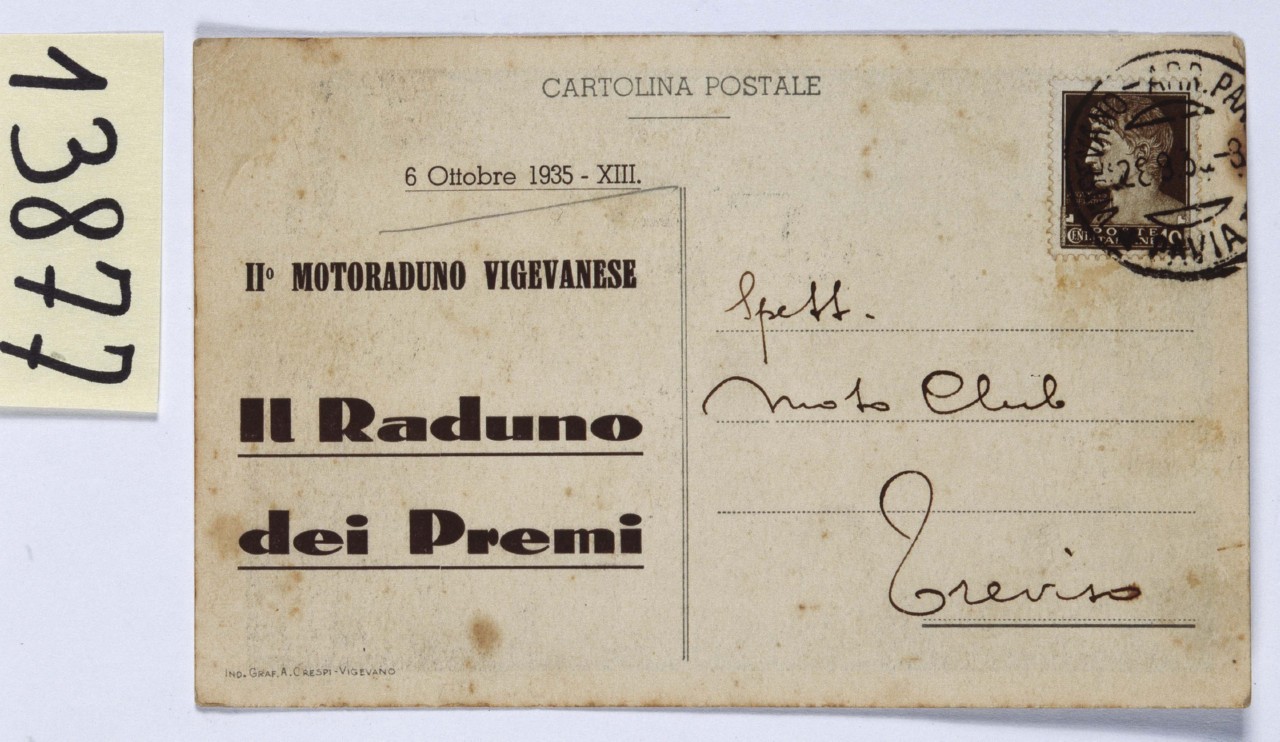 13877
CARTOLINA POSTALE
6 Ottobre 1935 - XIII.
IIº MOTORADUNO VIGEVANESE
Il Raduno
dei Premi
IND. GRAF. A. CRESPI - VIGEVANO
POSTE
ITALIANE
CENT. 10
PAVIA
Spett.
Moto Club
Treviso